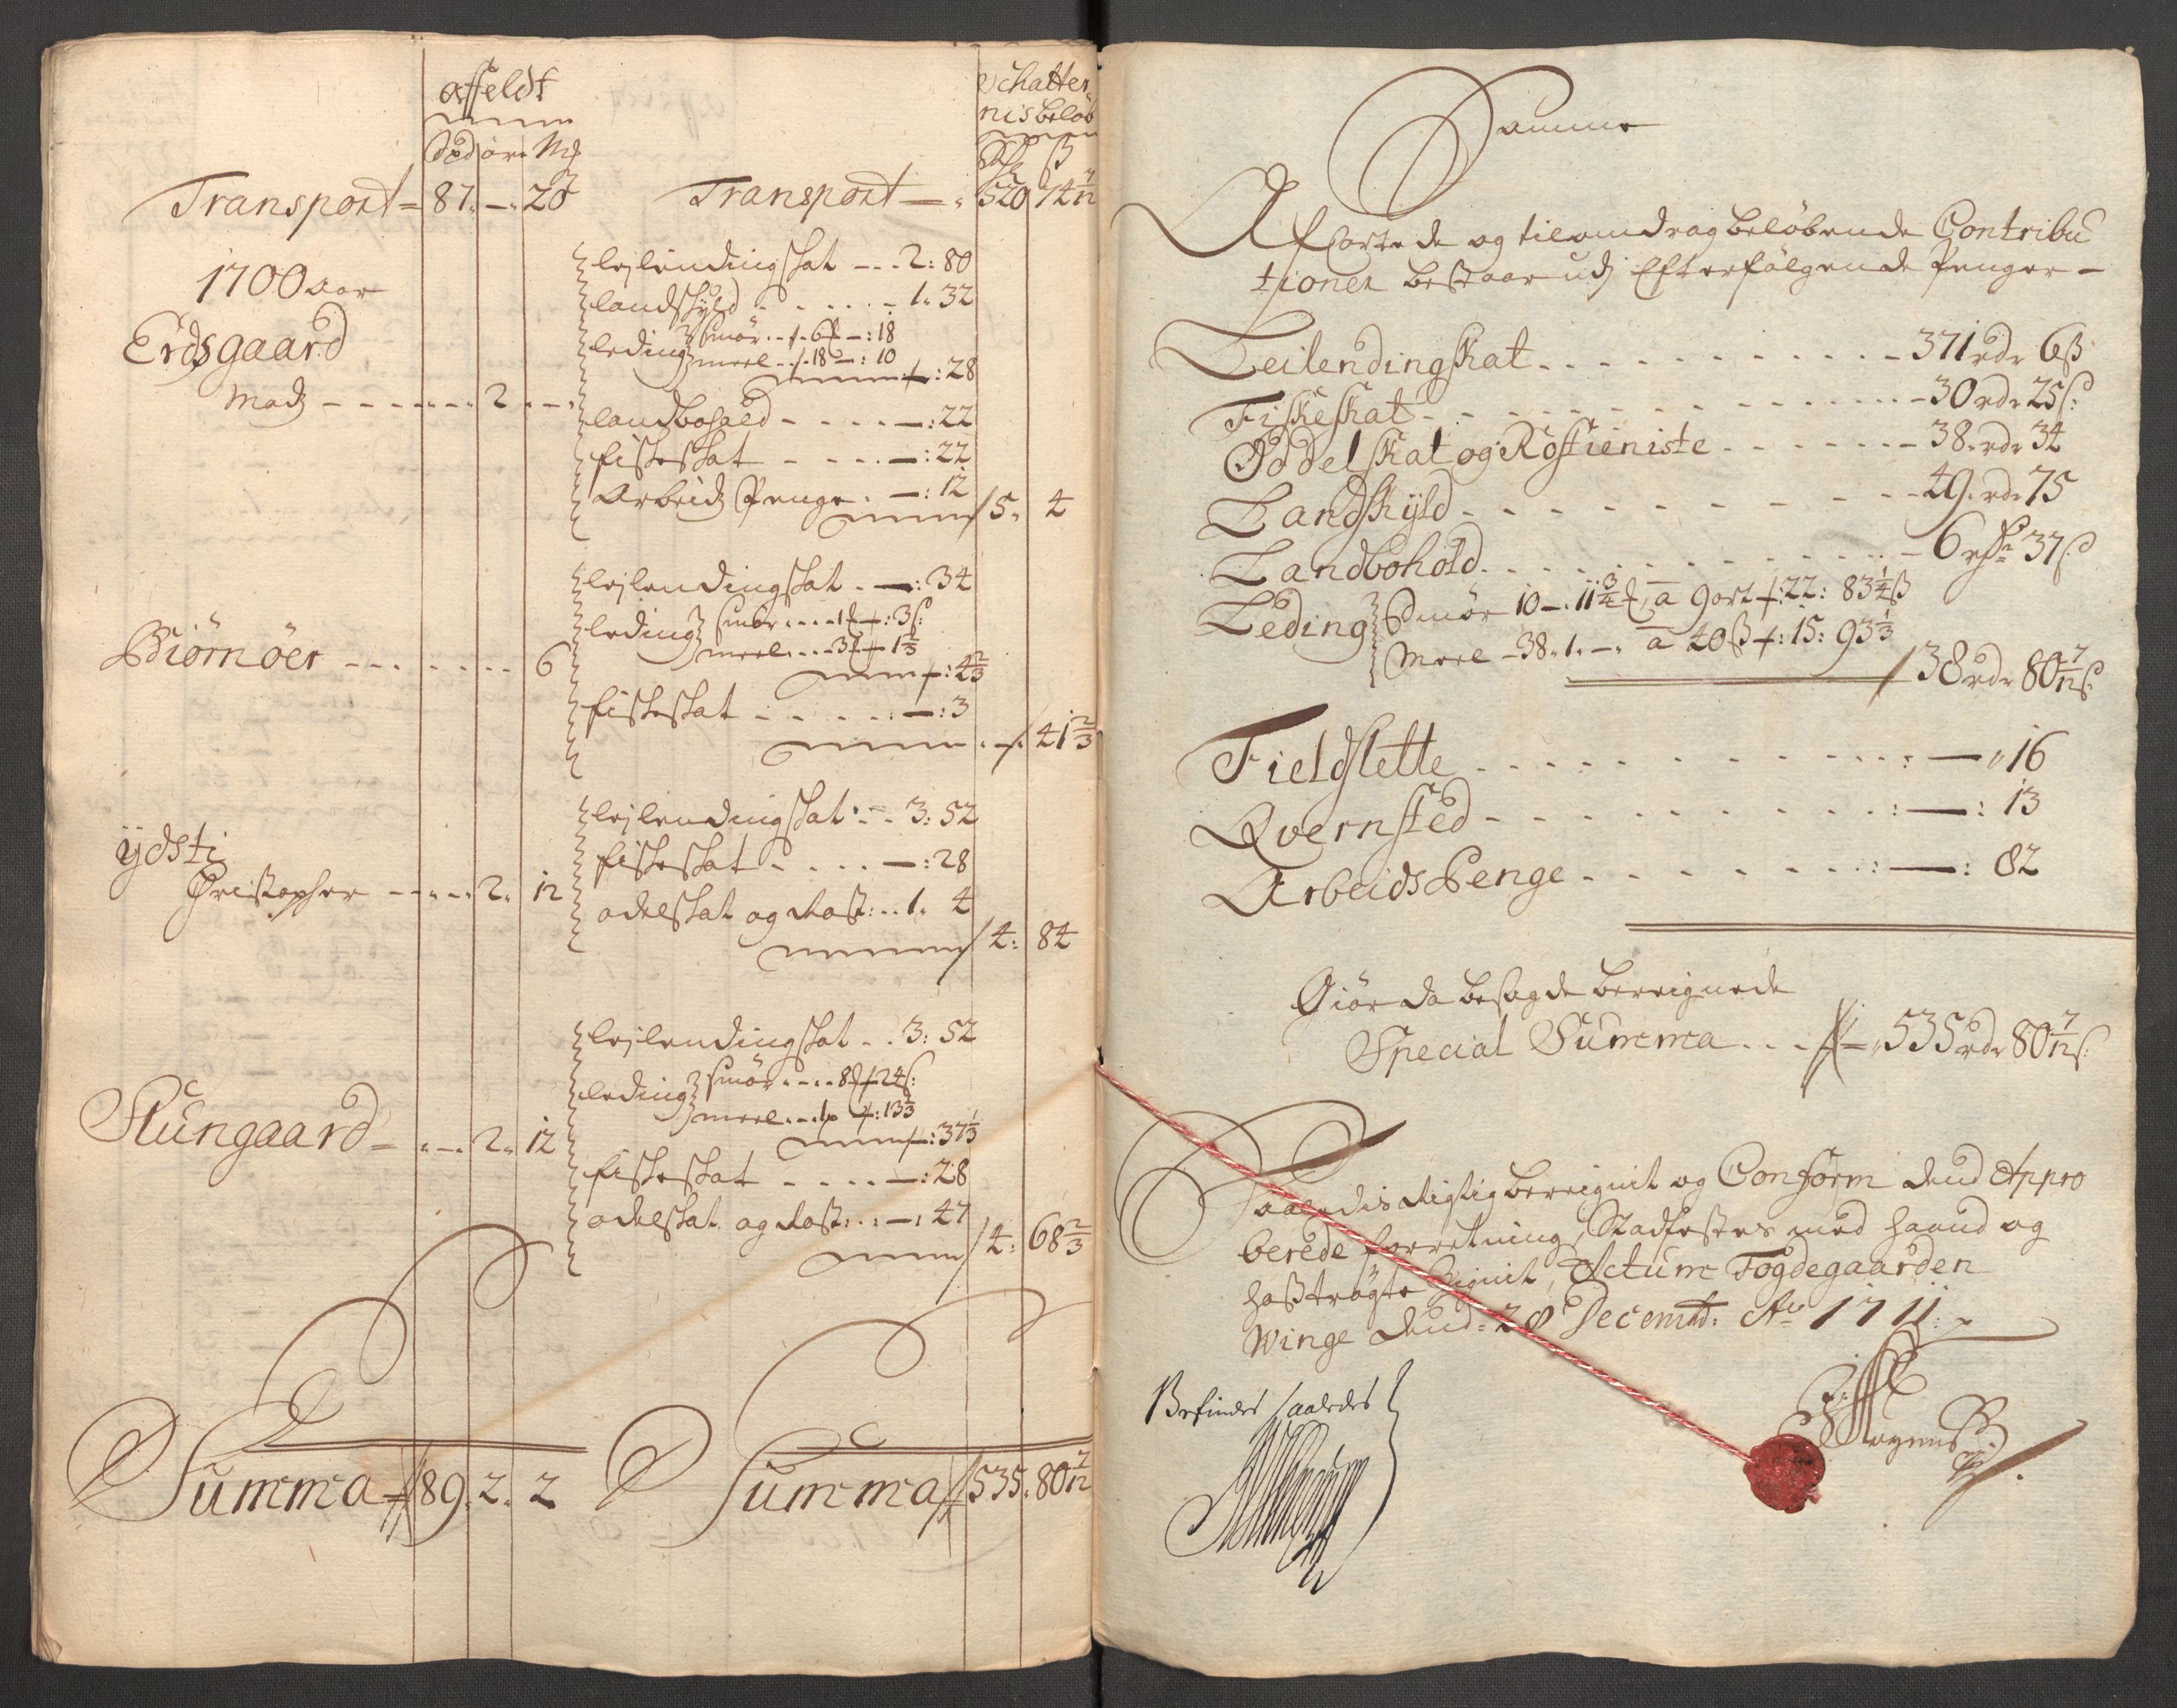 affeldt
Schatter
nis beløb
Spd ör Mf
Rdr ß
Transport = 87. — 20
Transport — 520 74 7/12
1700 aar
Erdsgaard
Mads - - - - - - 2 . —
lejlendingskat - - - 2: 80
landskyld - - - - - 1. 32
leding smör . . 6 — : 18
meel . . 18 — : 10
— : 28
landbohold - - - - — : 22
fiskeskat - - - - — : 22
Arbeids Penge . — : 12
5. 4
Biörnöer - - - - - - - 6
lejlendingskat . — : 34
leding smör . . . . 1 — : 3 ß:
meel . . . 3 — 1 1/3
— : 4 2/3
fiskeskat - - - - - — : 3
— 41 2/3
ÿdsti
Christopher - - - - 2. 12
lejlendingskat : - - 3: 52
fiskeskat - - - - — : 28
odelskat og Rost: . . 1. 4
4: 84
Stungaard - . - . 2. 12
lejlendingskat . . 3: 52
leding smör . . . . 8 — 24 ß:
meel . . . 1 — : 13 1/3
— : 37 1/3
fiskeskat - - - - — : 28
odelskat og Rost: . . — : 47
4: 68 2/3
Summa 89. 2. 2
Summa 535. 80 7/12
Samme
Aförte de og tilsamdrag beløbende Contribu
tioner bestaar udj Efterfølgende Penger —
Leilendingskat - - - - - - - - - 371 rdr 6 ß
Fiskeskat - - - - - - - - - - 30 rdr 25 ß:
Oddelskat og Rostieniste - - - - - - 38. rdr 34
Landskÿld - - - - - - - - - 49. rdr 75
Landbohold - - - - - - - - - 6 rdr 37 ß
Leding Smör 10 — . 11 3/4 a 9 ort : 22: 83 1/4 ß
Meel — 38. 1. — . a 40 ß : 15: 93 1/3
38 rdr 80 7/12 ß:
Fieldslette - - - - - - - - - - : — " 16
Qvernsted - - - - - - - - - - : — : 13
Arbeids Penge - - - - - - - - : — : 82
Giör da besagde bereignede
Special Summa . . . 535 rdr 80 7/12 ß:
Saaledis Rigtig bereignit og Conform dend Appro
berede forretning, Stadfestes med haand og
hoßtrögte Signit, Actum Fogdegaarden
Winge dend: 28 Decembr: Ao 1711:
Befindes saaledes